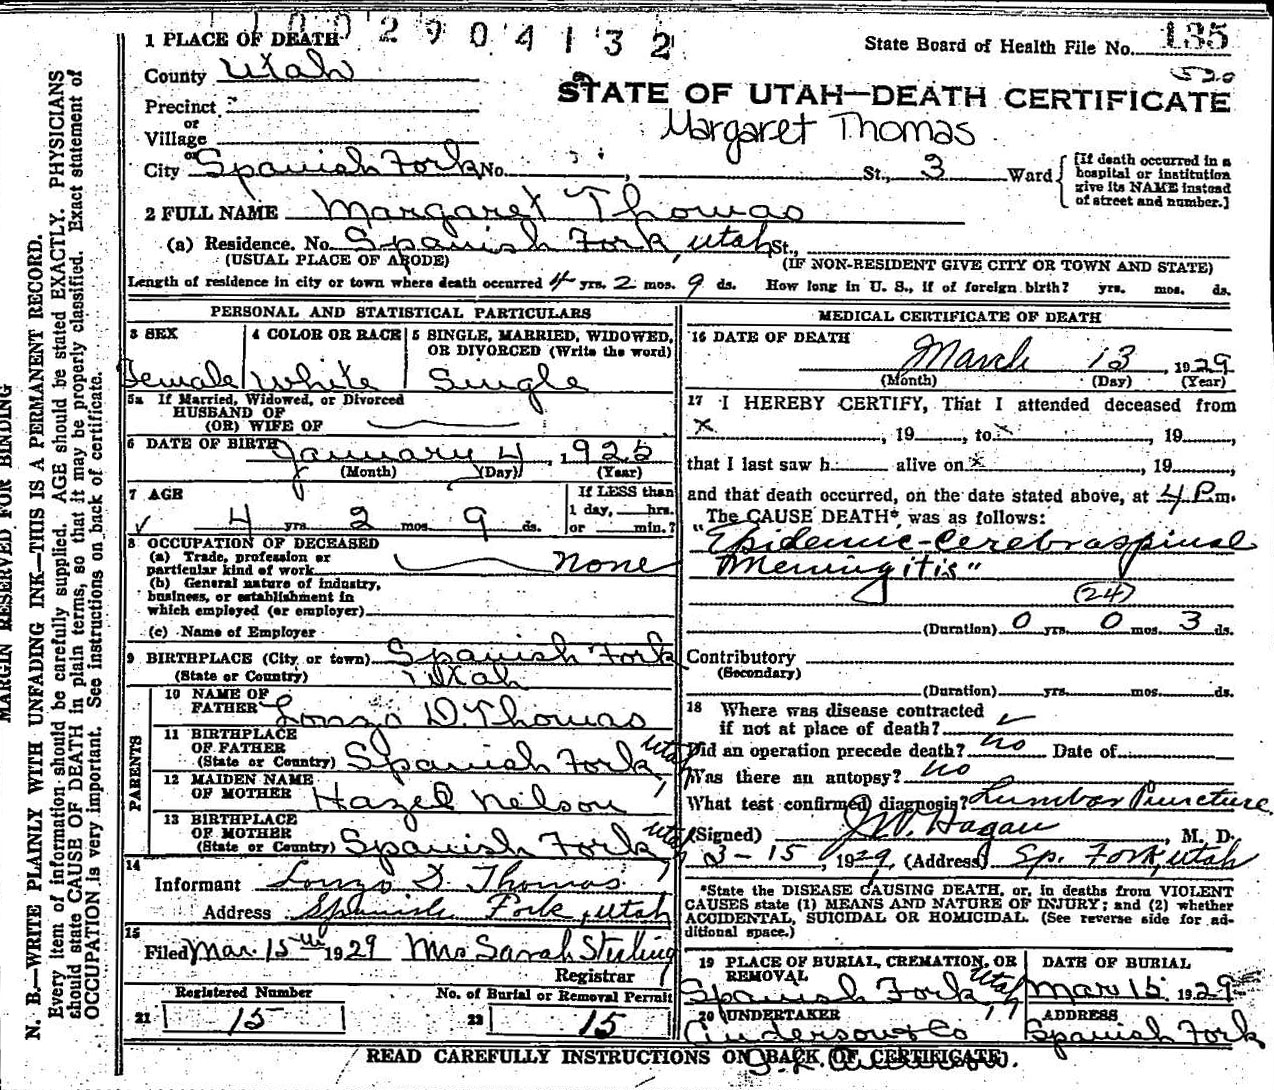 1 PLACE OF DEATH
1 1 0 0 2 9 0 4 1 3 2
State Board of Health File No. 135
520
County Utah
STATE OF UTAH—DEATH CERTIFICATE
Precinct
or
Village
Margaret Thomas
or
City Spanish Fork No. , St., 3 Ward
[If death occurred in a
hospital or institution
give its NAME instead
of street and number.]
2 FULL NAME Margaret Thomas
(a) Residence. No. Spanish Fork, Utah St.,
(USUAL PLACE OF ABODE) (IF NON-RESIDENT GIVE CITY OR TOWN AND STATE)
Length of residence in city or town where death occurred 4 yrs. 2 mos. 9 ds. How long in U. S., if of foreign birth? yrs. mos. ds.
PERSONAL AND STATISTICAL PARTICULARS
3 SEX
Female
4 COLOR OR RACE
White
5 SINGLE, MARRIED, WIDOWED,
OR DIVORCED (Write the word)
Single
5a If Married, Widowed, or Divorced
HUSBAND OF
(OR) WIFE OF
6 DATE OF BIRTH January 4, 1925
(Month) (Day) (Year)
7 AGE
4 yrs. 2 mos. 9 ds.
If LESS than
1 day, hrs.
or min.?
8 OCCUPATION OF DECEASED
(a) Trade, profession or
particular kind of work none
(b) General nature of industry,
business, or establishment in
which employed (or employer)
(c) Name of Employer
9 BIRTHPLACE (City or town) Spanish Fork
(State or Country) Utah
PARENTS
10 NAME OF
FATHER Lonzo D. Thomas
11 BIRTHPLACE
OF FATHER
(State or Country) Spanish Fork, Utah
12 MAIDEN NAME
OF MOTHER Hazel Nelson
13 BIRTHPLACE
OF MOTHER
(State or Country) Spanish Fork, Utah
14
Informant Lonzo D Thomas
Address Spanish Fork, Utah
15
Filed Mar. 15th 1929 Mrs Sarah Sterling
Registrar
Registered Number
21 15
No. of Burial or Removal Permit
22 15
MEDICAL CERTIFICATE OF DEATH
16 DATE OF DEATH
March 13, 1929
(Month) (Day) (Year)
17 I HEREBY CERTIFY, That I attended deceased from
x , 19 , to x , 19 ,
that I last saw h alive on x , 19 ,
and that death occurred, on the date stated above, at 4 P.m.
The CAUSE DEATH*, was as follows:
"Epidemic-Cerebraspinal
Meningitis"
(24)
(Duration) 0 yrs. 0 mos. 3 ds.
Contributory
(Secondary)
(Duration) yrs. mos. ds.
18 Where was disease contracted
if not at place of death?
Did an operation precede death? no Date of
Was there an autopsy? no
What test confirmed diagnosis? Lumbar Puncture
(Signed) Hagan, M. D.
3-15, 1929, (Address) Sp. Fork, Utah
*State the DISEASE CAUSING DEATH, or, in deaths from VIOLENT
CAUSES state (1) MEANS AND NATURE OF INJURY; and (2) whether
ACCIDENTAL, SUICIDAL OR HOMICIDAL. (See reverse side for ad-
ditional space.)
19 PLACE OF BURIAL, CREMATION, OR
REMOVAL
Spanish Fork, Utah
DATE OF BURIAL
Mar 15, 1929
20 UNDERTAKER
Anderson & Co
ADDRESS
Spanish Fork
READ CAREFULLY INSTRUCTIONS ON BACK OF CERTIFICATE.
MARGIN RESERVED FOR BINDING
N. B.—WRITE PLAINLY WITH UNFADING INK—THIS IS A PERMANENT RECORD.
Every item of information should be carefully supplied. AGE should be stated EXACTLY. PHYSICIANS
should state CAUSE OF DEATH in plain terms, so that it may be properly classified. Exact statement of
OCCUPATION is very important. See instructions on back of certificate.